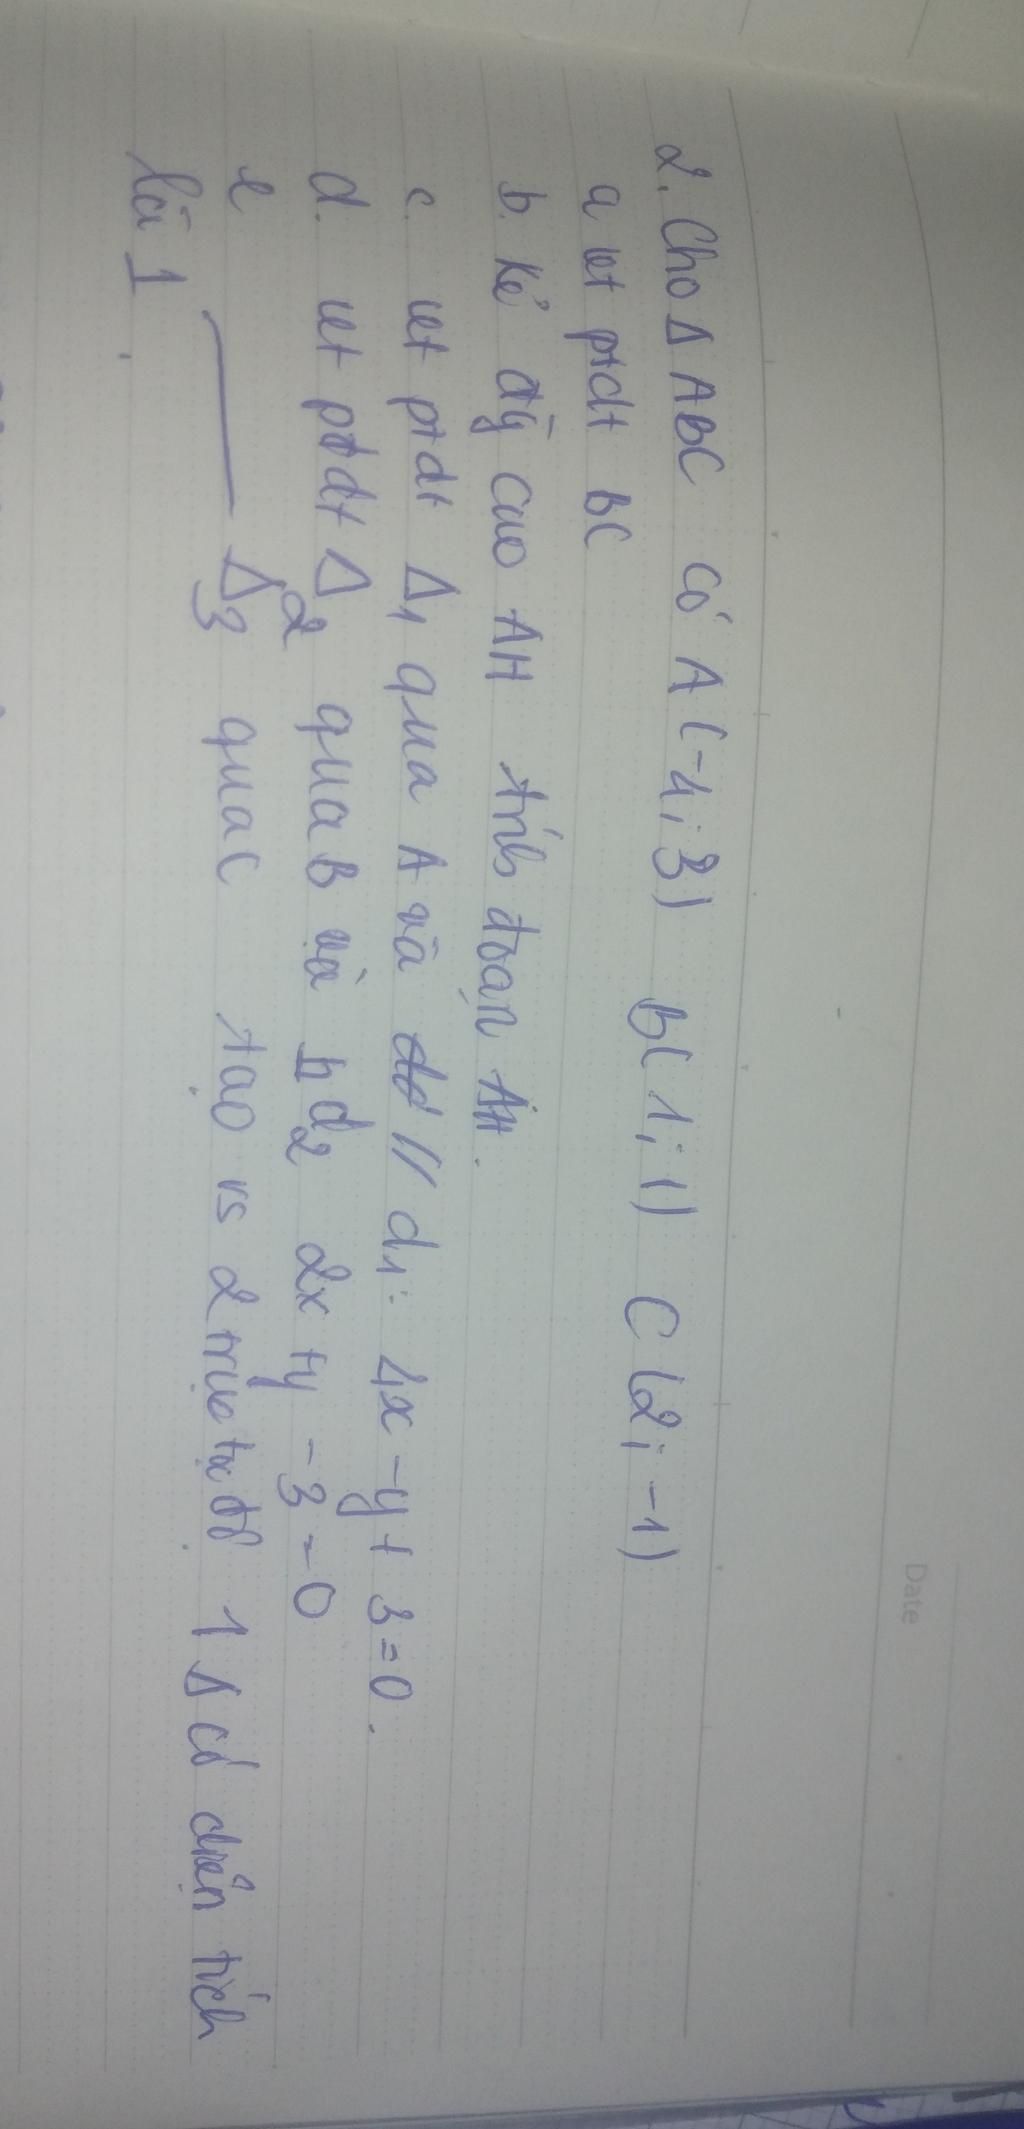 Date
2. Cho Δ ABC có A(-4; 3) B(1; 1) C(2; -1)
a vet ptdt BC
b. kẻ đg cao AH tính đoạn AH.
c. vet ptdt Δ1 qua A và // d1: 4x - y + 3 = 0.
d. vet ptdt Δ2 qua B và ⊥ d2 2x + y - 3 = 0
e ——— Δ3 qua C tạo vs 2 trục tọa độ 1 Δ có diện tích
là 1